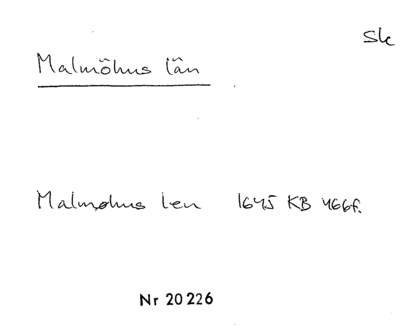 Sk
Malmöhus län
Malmøhus len 1645 KB 466f.
Nr 20226